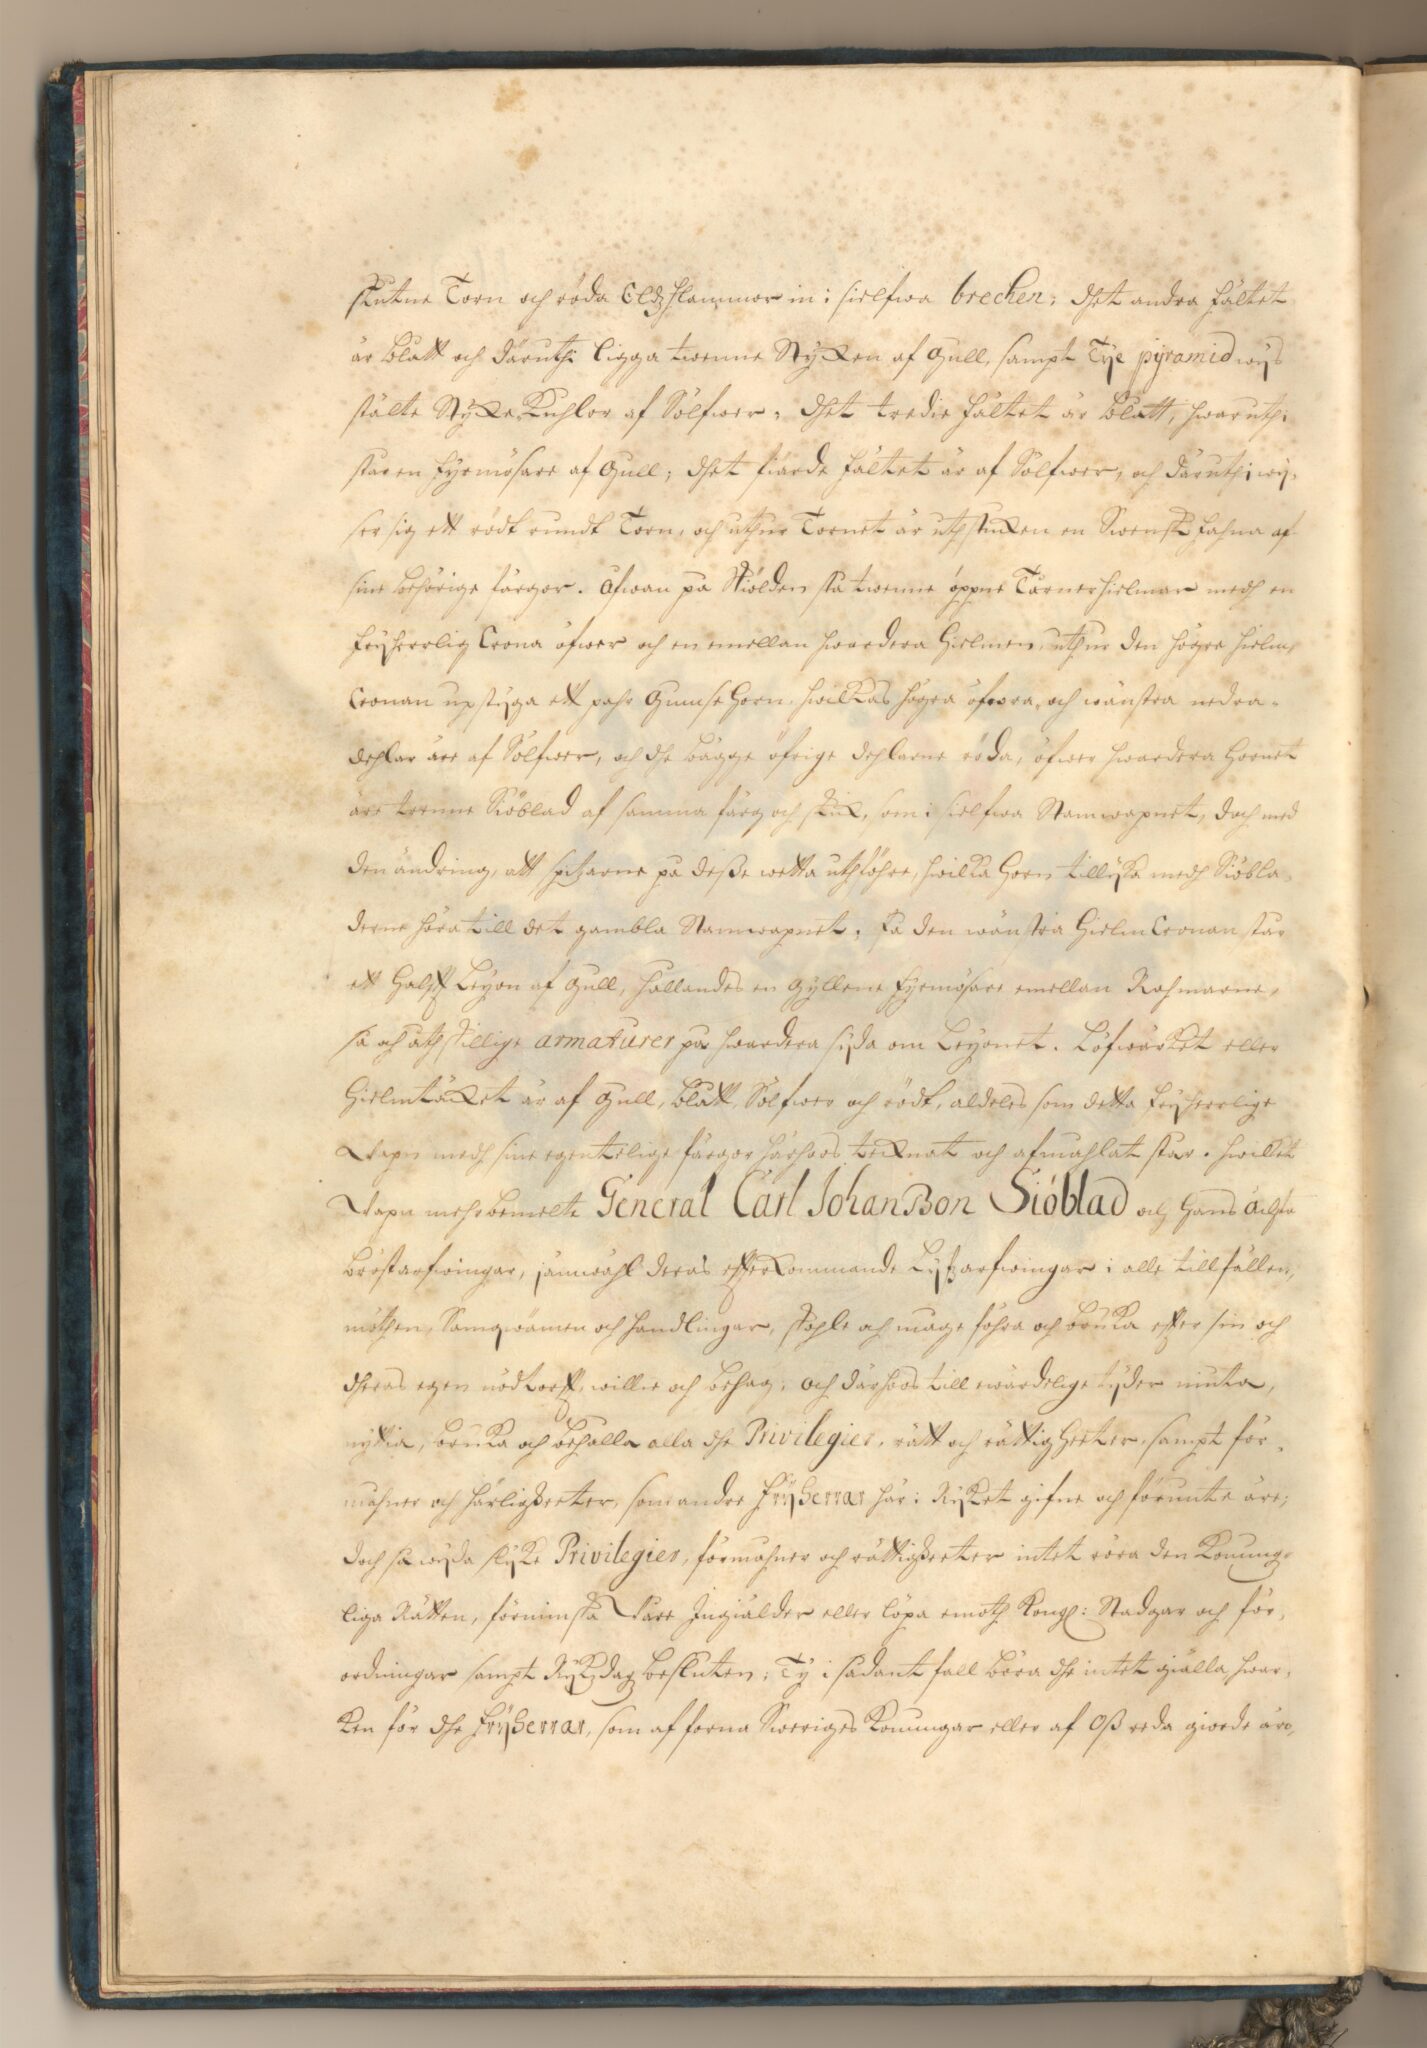 skutne Torn och röda Eldzflammor in i sielfwa brechen; dhet andra fältet
är blått och däruthi ligga twenne Stycken af Gull, sampt Tye pyramid wys
stälte Stycke Kuhlor af Sölfwer; dhet tredie fältet är blått, hwaruthi
står en fyrmösare af Gull; dhet fiärde fältet är af Sölfwer, och däruthi wy-
ser sig ett rödt rundt Torn, och uthur Tornet är uthstucken en Swensk fahna af
sine behörige färgor. Ofwan på Skiölden stå twenne öppne Tornerhielmar medh en
fryherrlig Crona öfwer och en emellan hwardera Hielmen, uthur den högre hielm-
Cronan upstyga ett pahr Gumse Horn, hwilkas högra öfwra, och wänstra nedra
dehlar äre af Sölfwer, och dhe bägge öfrige dehlarne röda, öfwer hwardera Hornet
äre trenne Siöblad af samma färg och skick, som i sielfwa Stamwapnet, doch med
den ändring, att spitzarne på deße wetta uthföhre, hwilka Horn tillyka medh Siöbla-
derne höra till det gambla Stamwapnet; På den wänstra Hielm Cronan står
ett Halft Leyon af Gull, hållandes en gyllene fyrmösare emellan Rahmarne,
så och åthskillige armaturer på hwardera sijda om Leyonet. Löfwärcket eller
Hielmtäcket är af Gull, blått, Sölfwer och rödt, aldeles som detta fryherrlige
Wapn medh sine egentelige färgor härhoos tecknat och afmahlat står. Hwilket
Wapn mehrbemelte General Carl Johanßon Siöblad och Hans ächta
bröstarfwingar, jämwähl deras effterkommande Lyfzarfwingar i alle tillfällen,
möthen, Samqwämen och handlingar, skohle och mage föhra och bruka effter sin och
dheras egen nödtorfft, willie och behag; och därhoos till ewärdelige tyder niuta,
nyttia, bruka och behålla alla dhe Privilegier, rätt och rättigheeter, sampt för-
måhner och härligheeter, som andre fryherrar här i Ryket gifne och förunte äre;
doch så wyda slyke Privilegier, förmåhner och rättigheeter intet röra den Konung-
liga Rätten, förnimsta Ware Ingiälder eller löpa emoth Kongl: Stadgar och för-
ordningar sampt Rykzdagz besluten; Ty i sådant fall böra dhe intet giälla hwar-
ken för dhe fryherrar, som af forna Sweriges Konungar eller af Oß reda giorde äro,